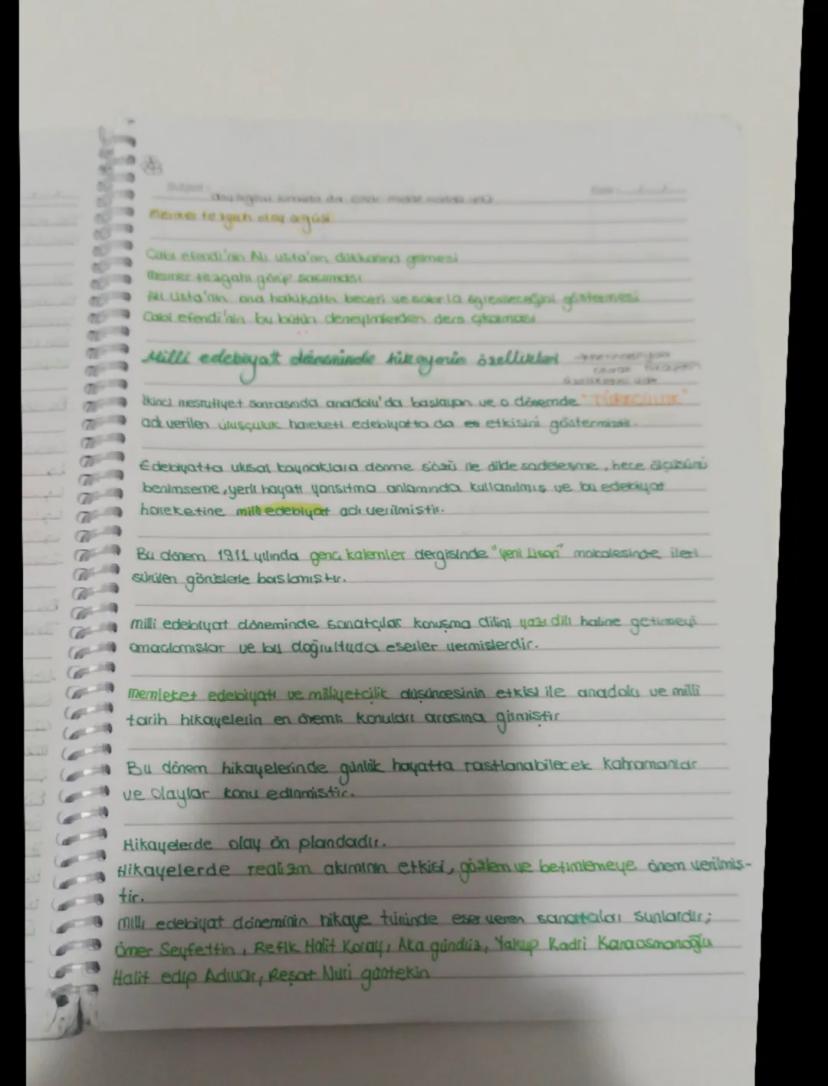 Mermer tezgah olay örgüsü
Cabi efendi'nin Ali usta'nın dükkanına gelmesi
Mermer tezgahı görüp şaşırması
Ali Usta'nın ona hakikatin beceri ve sabırla öğrenileceğini göstermesi
Cabi efendi'nin bu bütün deneyimlerden ders çıkarması
Milli edebiyat döneminde hikayenin özellikleri
ikinci meşrutiyet sonrasında anadolu'da başlayan ve o dönemde "TÜRKÇÜLÜK"
adı verilen ulusçuluk hareketi edebiyatta da etkisini göstermiştir.
Edebiyatta ulusal kaynaklara dönme sözü ile dilde sadeleşme, hece ölçüsünü
benimseme, yerli hayatı yansıtma anlamında kullanılmış ve bu edebiyat
hareketine milli edebiyat adı verilmiştir.
Bu dönem 1911 yılında genç kalemler dergisinde "yeni Lisan" makalesinde ileri
sürülen görüşlerle başlamıştır.
milli edebiyat döneminde sanatçılar konuşma dilini yazı dili haline getirmeyi
amaçlamışlar ve bu doğrultuda eserler vermişlerdir.
memleket edebiyatı ve milliyetçilik düşüncesinin etkisi ile anadolu ve milli
tarih hikayelerin en önemli konuları arasına girmiştir
Bu dönem hikayelerinde günlük hayatta rastlanabilecek kahramanlar
ve olaylar konu edinmiştir.
Hikayelerde olay ön plandadır.
Hikayelerde realizm akımının etkisi, gözlem ve betimlemeye önem verilmiş-
tir.
milli edebiyat döneminin hikaye türünde eser veren sanatçıları şunlardır;
Ömer Seyfettin, Refik Halit Karay, Aka gündüz, Yakup Kadri Karaosmanoğlu
Halit edip Adıvar, Reşat Nuri güntekin